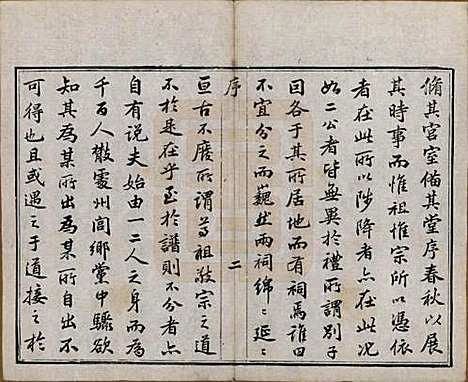 脩其宮室備其堂序春秋以展
其時事而惟祖惟宗所以憑依
者在此所以陟降者亦在此况
如二公者皆無異於禮所謂別子
因各于其所居地而有祠焉誰曰
不宜分之而巍然兩祠綿〻延〻
序
二
亘古不廢所謂尊祖敬宗之道
不於是在乎至於譜則不分者亦
自有說夫始由一二人之身而為
千百人散處州閭鄉黨中驟欲
知其為某所出為某所自出不
可得也且或遇之于道接之於